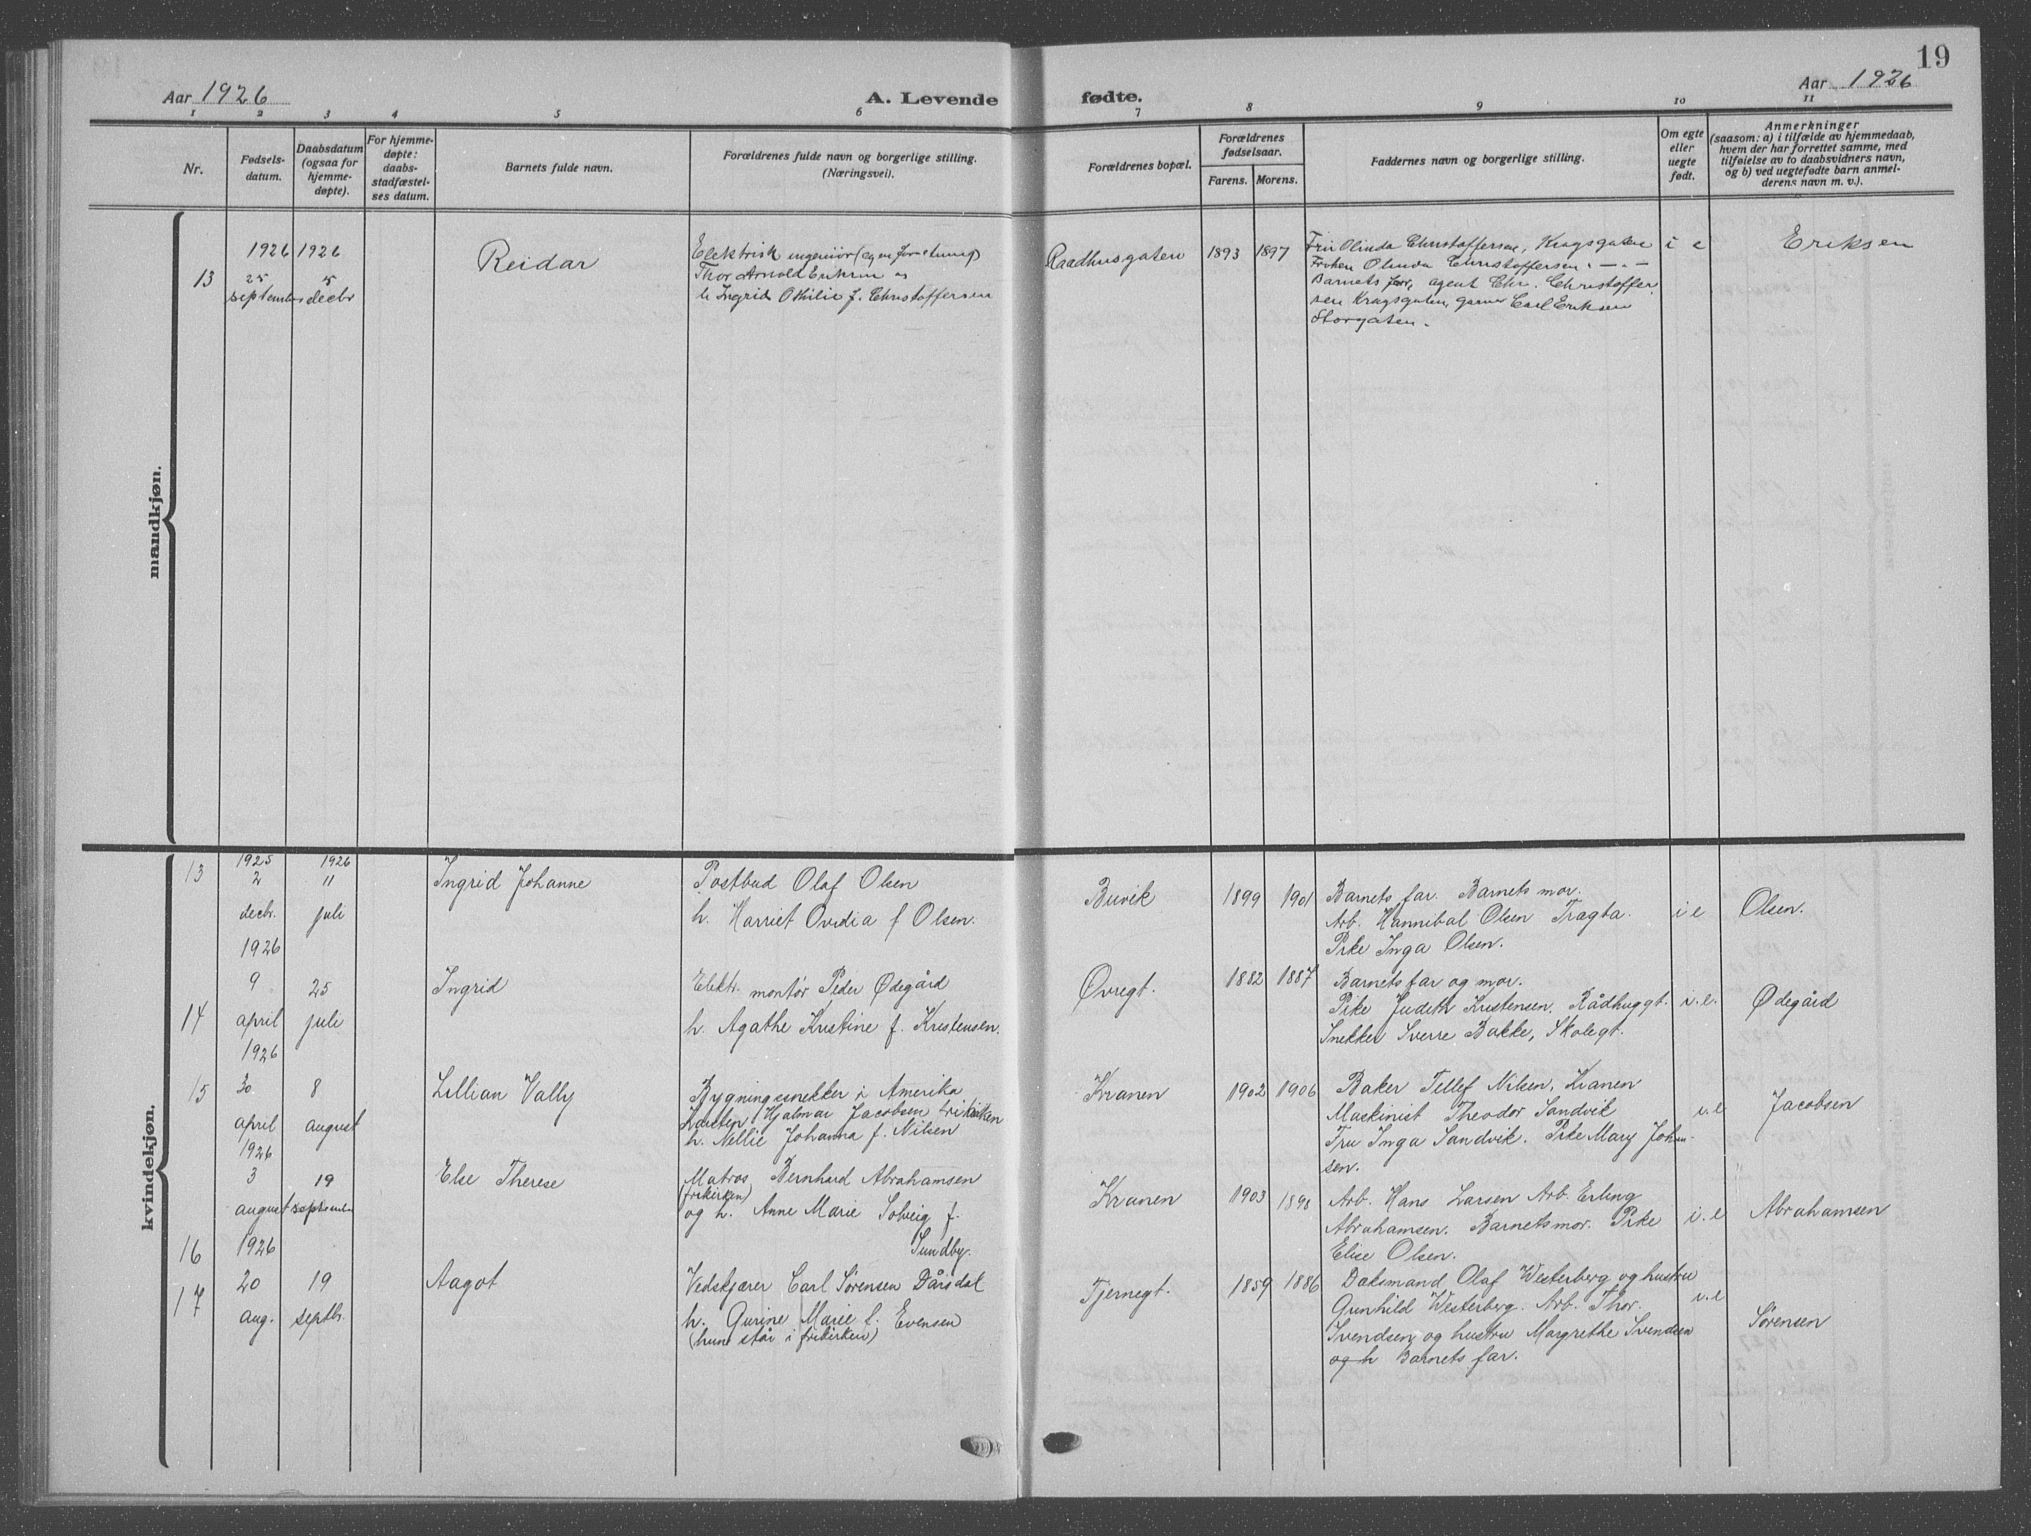 19
Aar 1926
A. Levende
fødte.
Aar 1926
1 2 3 4 5 6 7 8 9 10 11
Nr.
Fødsels-
datum.
Daabsdatum
(ogsaa for
hjemme-
døpte).
For hjemme-
døpte:
daabs-
stadfæstel-
ses datum.
Barnets fulde navn.
Forældrenes fulde navn og borgerlige stilling.
(Næringsvei).
Forældrenes bopæl.
Forældrenes
fødselsaar.
Farens. Morens.
Faddernes navn og borgerlige stilling.
Om egte
eller
uegte
født.
Anmerkninger
(saasom: a) i tilfælde av hjemmedaab,
hvem der har forrettet samme, med
tilføielse av to daabsvidners navn,
og b) ved uegtefødte barn anmel-
derens navn m. v.).
mandkjøn.
13
1926
25
september
1926
5
decbr
Reidar
Elektrisk ingeniør (egen forretning)
Thor Arnold Eriksen og
h. Ingrid Othilie f. Christoffersen
Raadhusgaten
1893
1897
Fru Olinda Christoffersen, Kragsgaten
Frøken Olinda Christoffersen. - " -
Barnets far, agent Chr. Christoffer
sen Kragsgaten, garver Carl Eriksen
Storgaten.
i e
Eriksen
kvindekjøn.
13
1925
2
decbr.
1926
11
juli
Ingrid Johanne
Postbud Olaf Olsen
h. Harriet Ovidia f Olsen.
Buvik
1899
1901
Barnets far. Barnets mor.
Arb. Hannibal Olsen Tragta.
Pike Inga Olsen.
i e
Olsen.
14
1926
9
april
25
juli
Ingrid
Elektr. montør Peder Ødegård
h. Agathe Kristine f. Kristensen.
Øvregt.
1882
1887
Barnets far og mor.
Pike Judith Kristensen. Rådhusgt.
Snekker Sverre Bakke, Skolegt.
i.e.
Ødegård
15
1926
30
april
8
august
Lillian Vally
Bygningssnekker i Amerika
Karsten Hjalmar Jacobsen frikirken
h. Nellie Johanna f. Nilsen
Kranen
1902
1906
Baker Tellef Nilsen, Kranen
Maskinist Theodor Sandvik
Fru Inga Sandvik. Pike Mary Johan-
sen.
i.e
Jacobsen
16
1926
3
august
19
september
Else Therese
Matros Bernhard Abrahamsen
(frikirken)
og h. Anne Marie Solveig f.
Sundby.
Kranen
1903
1898
Arb. Hans Larsen Arb. Erling
Abrahamsen. Barnets mor. Pike
Elise Olsen.
i.e
Abrahamsen
17
1926
20
aug.
19
septbr.
Aagot
Vedskjærer Carl Sørensen Dårsdal
h. Gurine Marie f. Evensen
(hun står i frikirken)
Tjernegt.
1859
1886
Daksmand Olaf Westerberg og hustru
Gunhild Westerberg. Arb. Thor.
Svendsen og hustru Margrethe Svendsen
og h Barnets far.
i.e
Sørensen